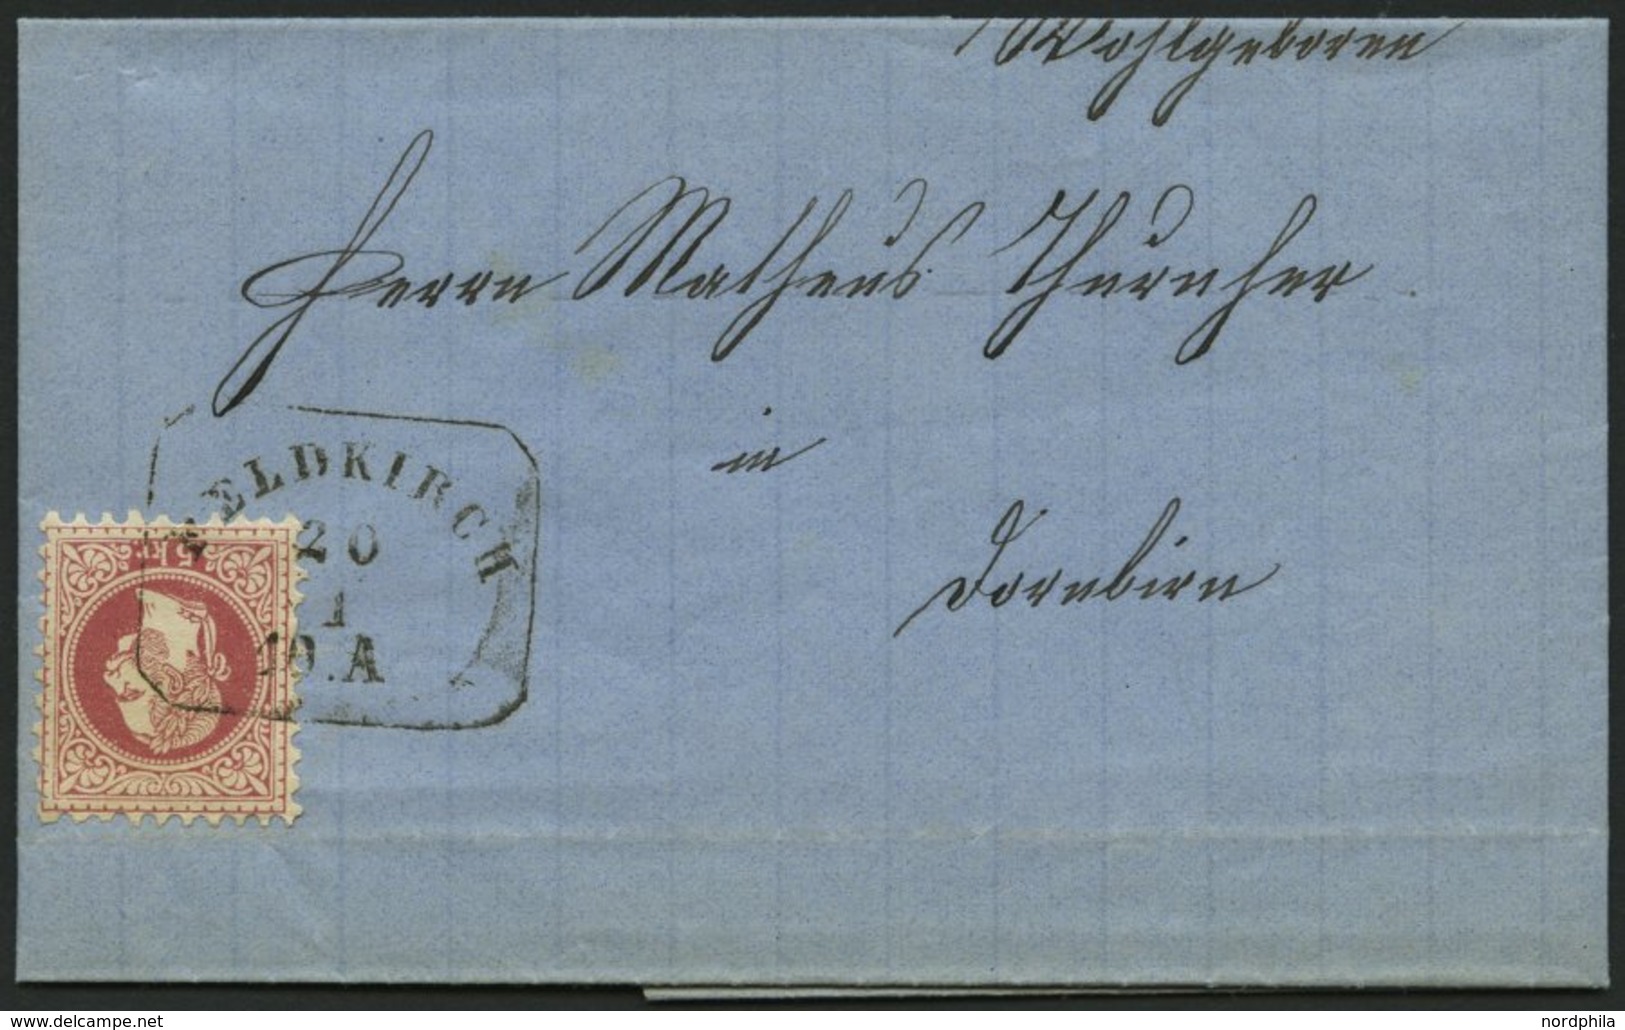 Wohlgeboren
Herrn Matheus Thurnher
in
Dornbirn
FELDKIRCH
20
1
10.A
5 kr.
www.delcampe.net
nordphila